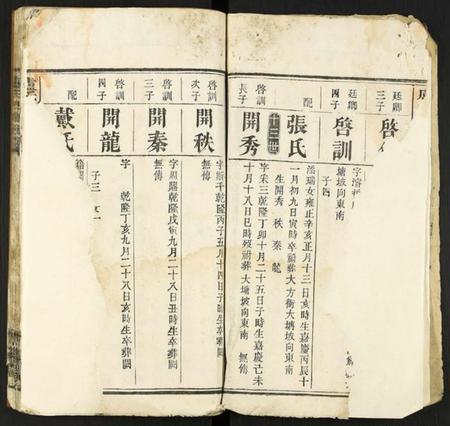 廷卿
三子
啓
廷卿
四子
啓訓
塘坡向東南
子四
配
張氏
潘瑞女雍正辛亥正月十三日亥時生嘉慶丙辰十
一月初九日寅時卒祔葬大方衝大塘坡向東南
生開秀 秋 秦 龍
十三世
啓訓
長子
開秀
字采三乾隆丁卯十月二十五日子時生嘉慶己未
十月十八日巳時歿祔葬大塘坡向東南 無傳
啓訓
次子
開秩
千乾隆丙子五月十四日子時生卒葬闕
無傳
啓訓
三子
開秦
字周 乾隆戊寅九月二十八日丑時生卒葬闕
無傳
啓訓
四子
開龍
字 乾隆丁亥九月二十八日亥時生卒葬闕
配
戴氏
子三